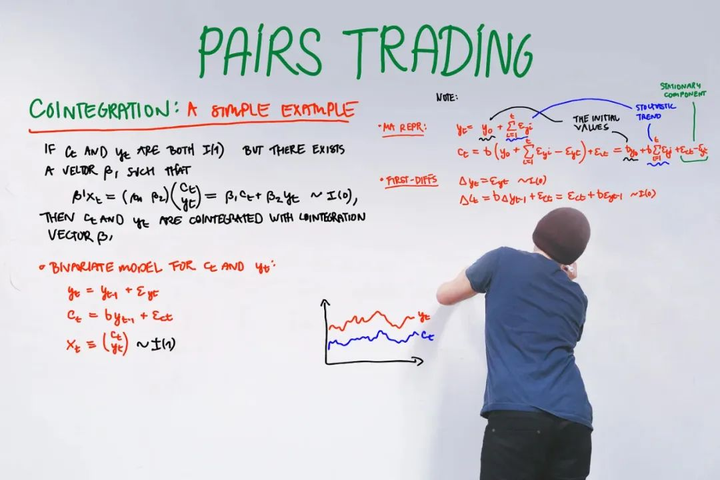 PAIRS TRADING
COINTEGRATION: A SIMPLE EXAMPLE
IF Ct AND yt ARE BOTH I(1) BUT THERE EXISTS
A VECTOR β, SUCH THAT
β'Xt = (β1 β2)(Ct yt) = β1Ct + β2yt ~ I(0),
THEN Ct AND yt ARE COINTEGRATED WITH COINTEGRATION
VECTOR β,
• BIVARIATE MODEL FOR Ct AND yt:
yt = yt-1 + Σyt
Ct = byt-1 + Σct
Xt ≡ (Ct yt) ~ I(1)
yt
Ct
NOTE:
STATIONARY
COMPONENT
STOCHASTIC
TREND
THE INITIAL
VALUES
• MA REPR:
yt = y0 + Σ t i=1 εyi
Ct = b(y0 + Σ t i=1 εyi - εyt) + εct = by0 + bΣ t i=1 εyi + εct - εyt
• FIRST-DIFFS
Δyt = εyt ~ I(0)
ΔCt = bΔyt-1 + εct = εct + bεyt-1 ~ I(0)